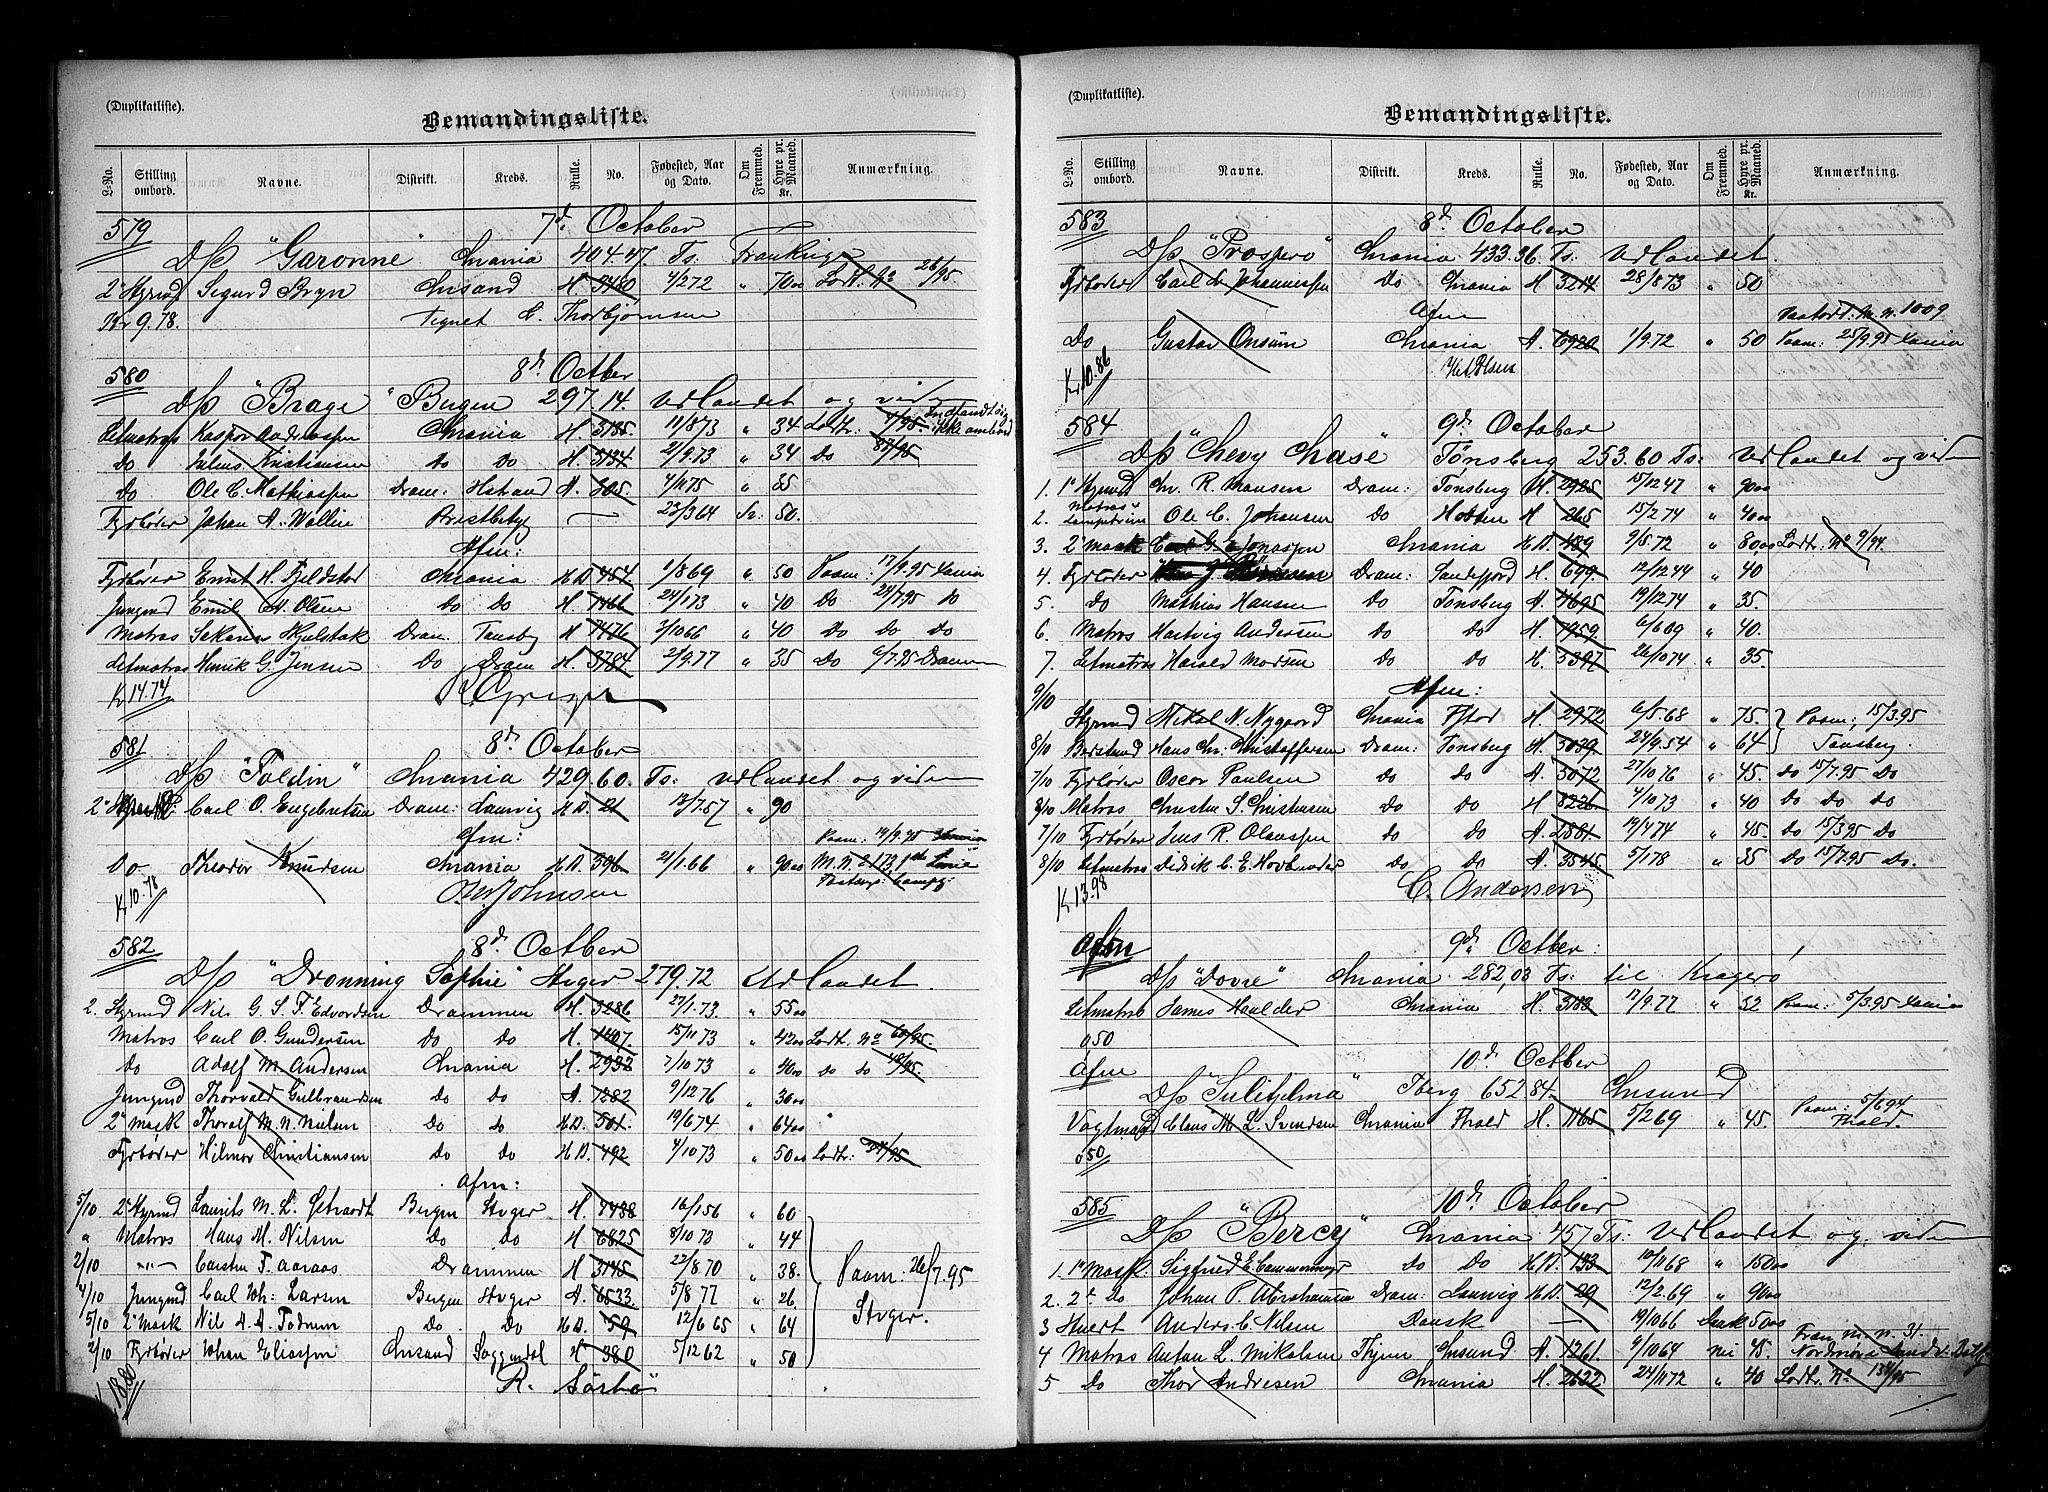 (Duplikatliste).
Bemandingsliste.
L-No. Stilling ombord. Navne. Distrikt. Kreds. Rulle. No. Fødested, Aar og Dato. Om Fremmed. Hyre pr. Maaned. Kr. Anmærkning.
579 7d October
D/s "Garonne" Chrania 404.47. Ts.
2' Styrmd Sigurd Bryn Chrsand H 3480 4/2 72 " 70 00 26/95.
Kr 9.78. Tegnet C. Thorbjørnsen
580 8d Octber
D/s "Brage" Bergen 297.14. Udlandet og vid
Letmatros Kasper Andreassen Chrania H. 3185. 11/8 73 " 34 Lodtr: ikke ombord
Do Julius Kristiansen Do Do H. 3134 2/9.73 " 34 Do
Do Ole C. Mathiassen Dram: A. 305. 4/11 75 " 35
Fyrbøder Johan A. Wallin — 23/3 64 Sv: 50.
Afm:
Fyrbøder Ernst H. Fjeldstad Chrania HD. 454 1/8 69 " 50 Paam: 17/9.95 Xania
Jungmd Emil A. Olsen Do Do H. 7466 24/1 73 " 40 Do 24/7.95 Do
Matros Sakarias Hjulstok Dram: Tønsbg H 7476 3/10 66 " 40 Do Do Do
Letmatros Henrik G. Jensen Do Dram H. 3784 2/9.77 " 35 Do 6/7.95 Drammen
Kr 14.74
581 8d October
D/s "Toldin" Chrania 429.60. Ts: udlandet og viden
2' Carl O. Engebretsen Dram: Laurvig HD. 21 13/7.57 " 90
Afm:
Do. Theodor Knudsen Chrania HD. 306 21/1.66 " 90 00 M.N. 2173
Kr 10.78 Johnsen
582 8d Octber
D/s "Dronning Sophie" Stvger 279.72 Udlandet.
2. Styrmd Nils G. S. F. Edvardsen Drammen H. 3286 27/1.73. " 55 00
Matros Carl O. Gundersen Do Do H. 1407. 15/11 73 " 42 00 Lodtr. No 60/95.
Do Adolf M. Andersen Chrania H. 2932 7/10 73 " 40 00 Do Do 48/95
Jungmd Thorvald Gulbrandsen Do Do A. 7282 9/12 76 " 30 00
2' Mask Thoralf M. N. Nielsen Do Do HD. 501. 19/6 74 " 64 00
Fyrbøder Hilmar Christiansen Do Do HD. 492 4/10 73 " 50 00 Lodtr:
Afm:
5/10 2' Styrmd Laurits M. L. Bergen Stvger H. 7438 16/1 56 " 60
" Matros Hans M. Nilsen Do Do H 6825 8/10 73 " 44
2/10 —"— Carsten F. Aaraas Drammen H 3145 22/8 70 " 38. Paam: 26/7.95
4/10 Jungmd Carl Joh: Larsen Bergen Stvger A. 6533. 5/8 77 " 26 Stvger.
5/10 2' Mask Nils A. A. Fodnem Do. Do HD. 59 12/6 65 " 64
2/10 Fyrbøder Johan Eliassen Chrsand Soggendal H 380 5/12 62 " 50
18.80 R. Sörbö
(Duplikatliste).
Bemandingsliste.
L-No. Stilling ombord. Navne. Distrikt. Kreds. Rulle. No. Fødested, Aar og Dato. Om Fremmed. Hyre pr. Maaned. Kr. Anmærkning.
583 8d October
D/s "Prospero" Chrania 433.36 Ts: Udlandet.
Fyrbøder Carl L. Johannessen Do Chrania H 3214 28/8 73 " 50
Afm M. N. 1009
Do Gustav Onsum Chrania A. 6920 1/9.72 " 50 Paam: 25/9.95 Xania
Kr 10.86
584 9d October
D/s "Chevy Chase" Tønsberg 253.60 Ts: Udlandet og viden
1. 1' Styrmd Chr. R. Hansen Dram: Tønsberg H. 2925 15/12 47 " 90 00
2. Matros Lamptrim Ole C. Johansen Do Holmen H 265 15/2 74 " 40 00
3. 2' Mask Carl G. E. Jonassen Chrania HD. 489 9/5.72 " 80 00 Lodtr. No 9/94.
4. Fyrbøder Dram: Sandefjord H. 699. 12/12 44 " 40
5. Do Mathias Hansen Do Tønsberg A. 4695 19/12 74 " 35.
6. Matros Hartvig Andersen Do Do H. 7959. 6/6 09 " 40.
7. Letmatros Harald Madsen Do Do H. 5397 26/10 74 " 35.
9/10 Afm:
Styrmd Mikal N. Nygaard Chrania Fstad H 2972 6/5.68 " 75. Paam: 15/3.95
8/10 Hans Chr. Christoffersen Dram: Tønsberg H. 5039. 24/9.54 " 64 Tønsberg.
7/10 Fyrbøder Oscar Paulsen Do Do A. 3072 27/10 76 " 45. Do 15/7.95 Do
8/10 Matros Christen S. Christensen Do Do H 8226. 4/10 73 " 40 Do Do Do
7/10 Fyrbøder Jens R. Olaussen Do Do A. 2881 19/4 74 " 45. Do 15/3.95 Do
8/10 Letmatros Didrik C. E. Do Do A. 3545. 5/1 78 " 35 Do 15/7.95 Do.
Kr 13.98 C. Andersen
Afm 9d Octber:
D/s "Dovre" Chrania 282,03 Ts: til Kragerø
Letmatros James Haulder Chrania H. 3183 17/9.77 " 32 Paam: 5/3.95 Xania
0 50
Afm 10d Octber
D/s "Sulitjelma" Tberg 652 84. Chrsund
Vagtmand Claus M. L. Svendsen Chrania Fhald H. 1165 5/2 69 " 45. Paam: 5/6 94 Fhald.
0 50
585 10d October
D/s "Bercy" Chrania 457 Ts: Udlandet og viden
1. 1' Mask. Sigfried E. Cammermeyer Do Do HD. 133 10/11 68 " 150 00
2. 2' Do Johan P. Abrahamsen Dram: Laurvig HD. 29 12/2.69 " 90 00
3 Stuert Anders. C. Nilsen Dansk — 19/10 66 Dansk 50 00
4 Matros Anton L. Mikalsen Thjem Chrsund A. 1261. 9/10 64 nei 45. Fram m. n. 31. Nordmøre
5 Do Thor Andresen Chrania H. 2632 24/11 72 " 40 Lodtr. No 134/95